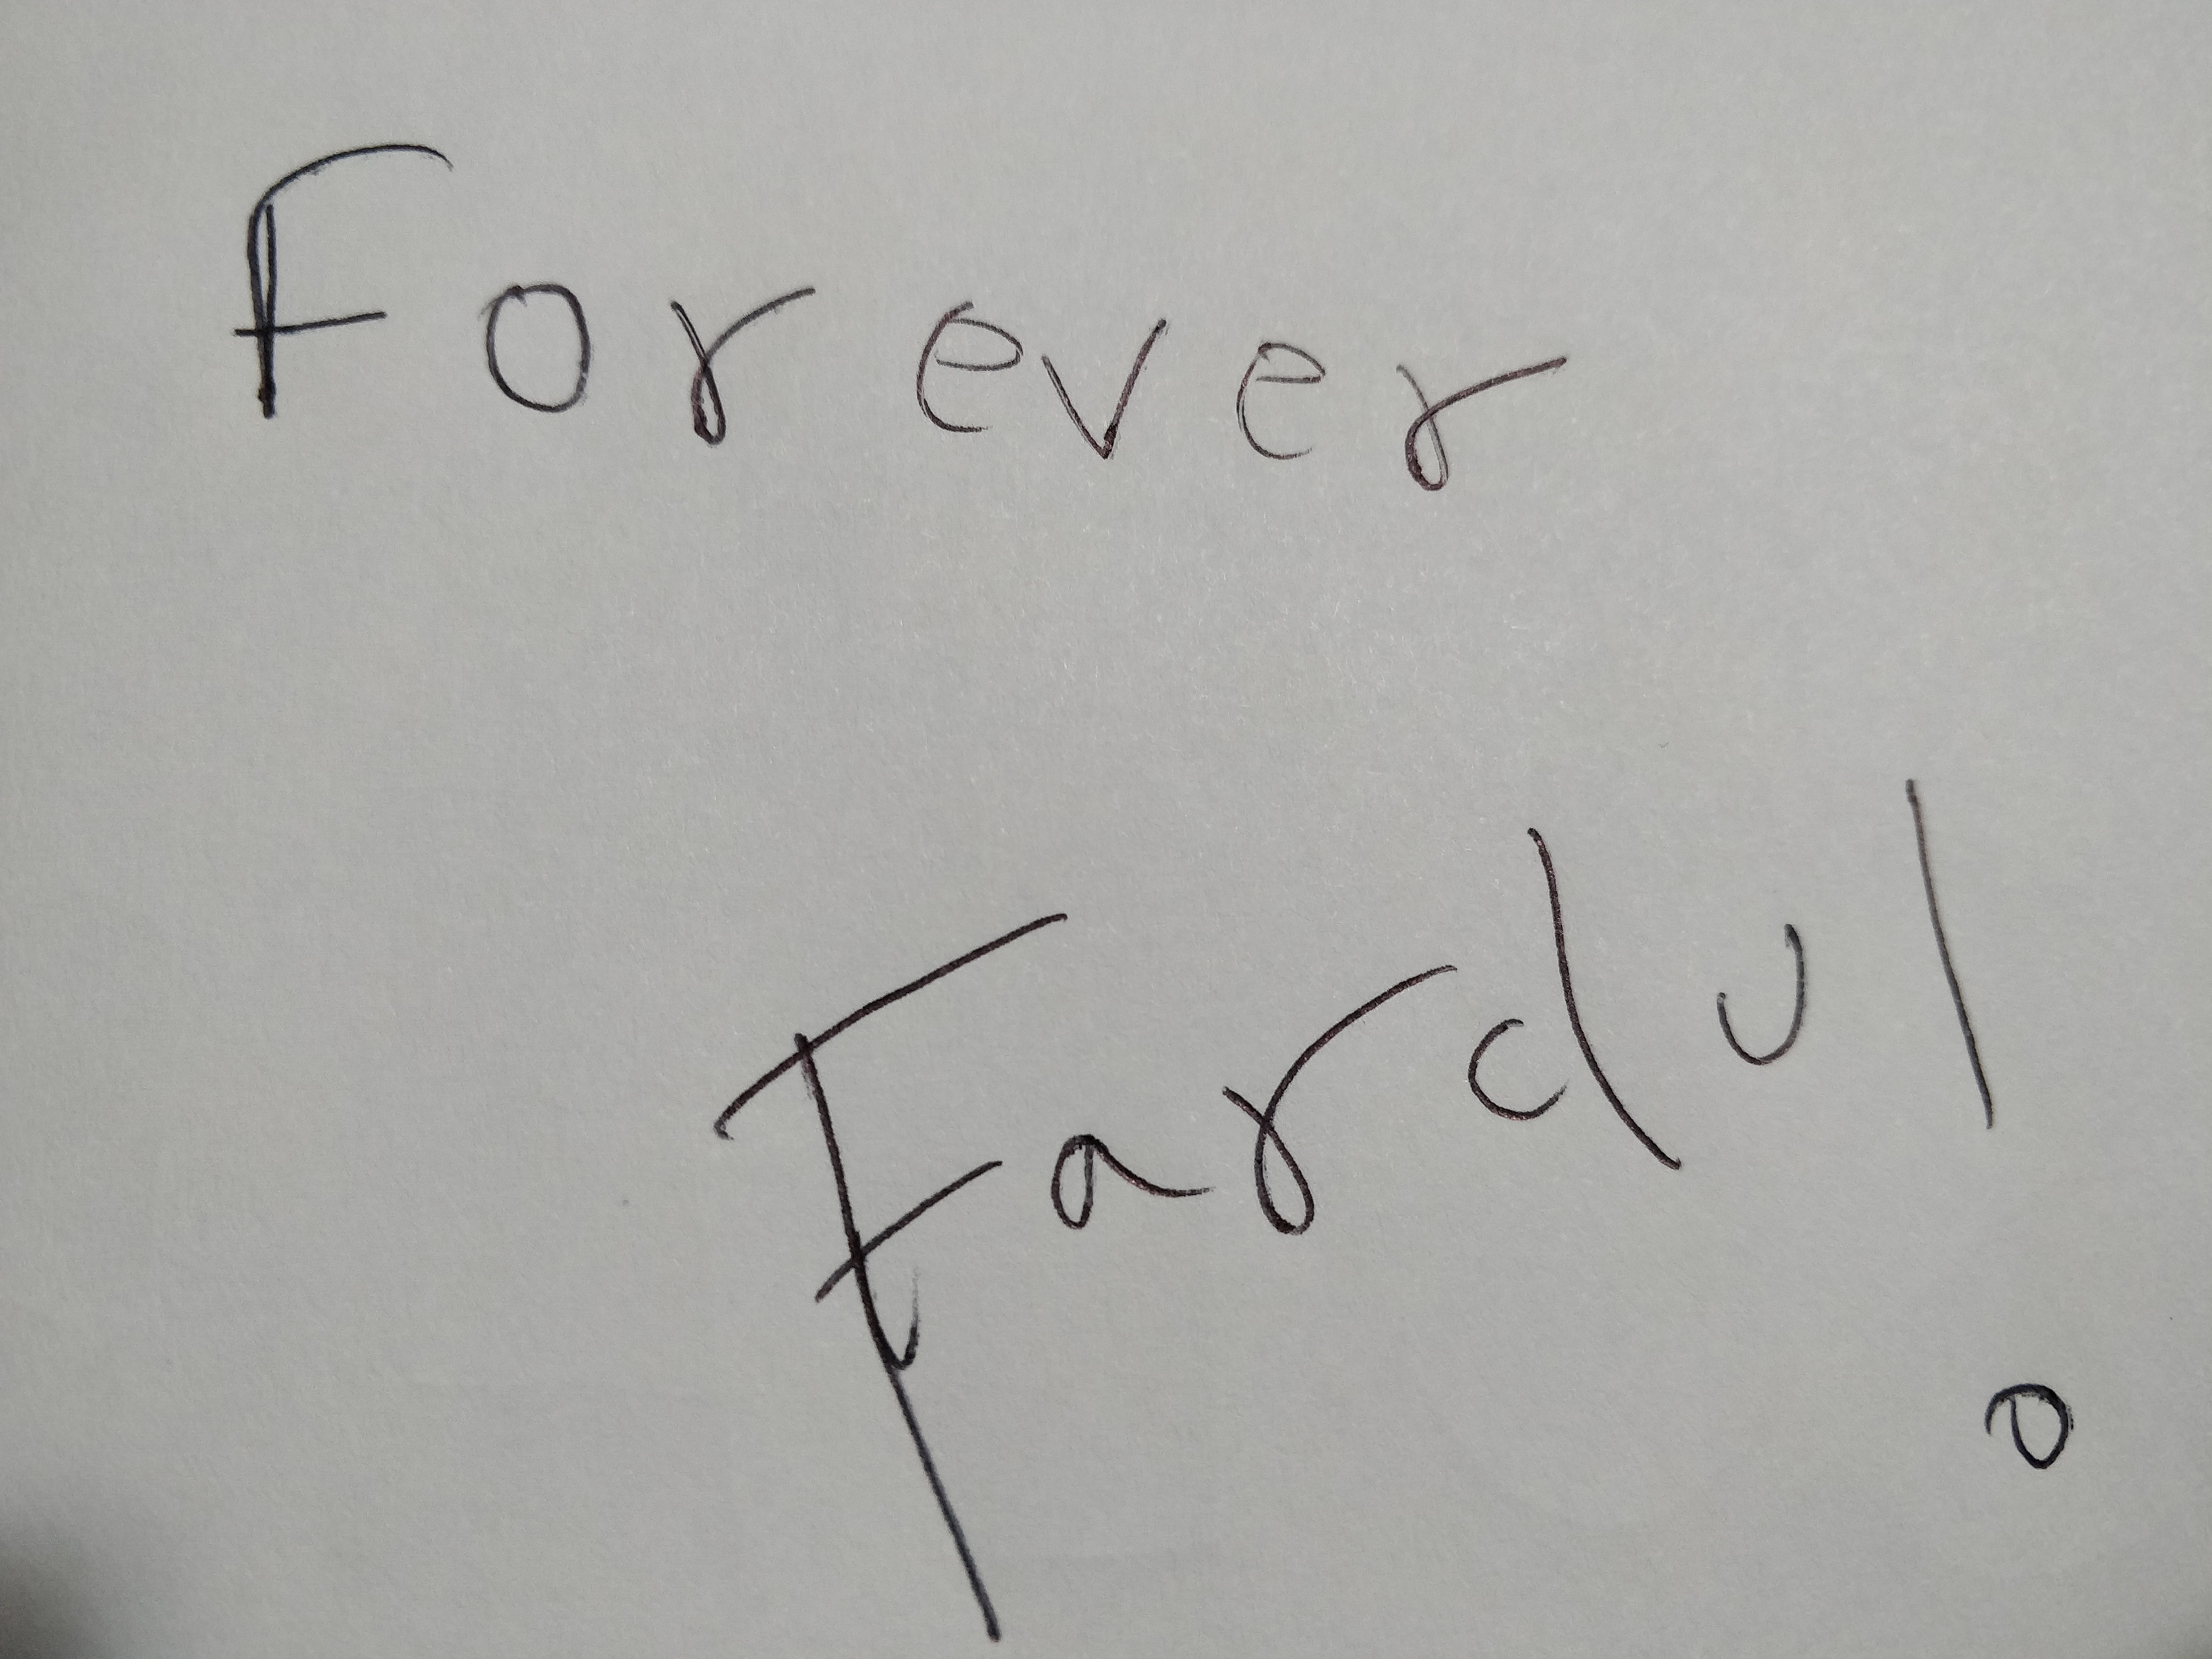 Forever
Fardul.